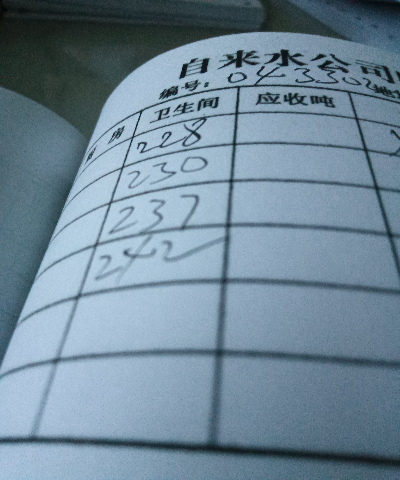 自来水公司
编号: 04330
厨房 卫生间 应收吨
228
230
237
242